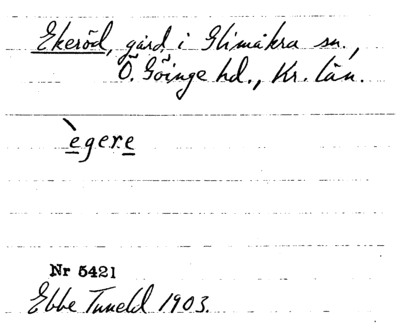 Ekeröd, gård i Glimåkra sn.,
Ö. Göinge hd., Kr. län.
ègere
Nr 5421
Ebbe Tuneld 1903.